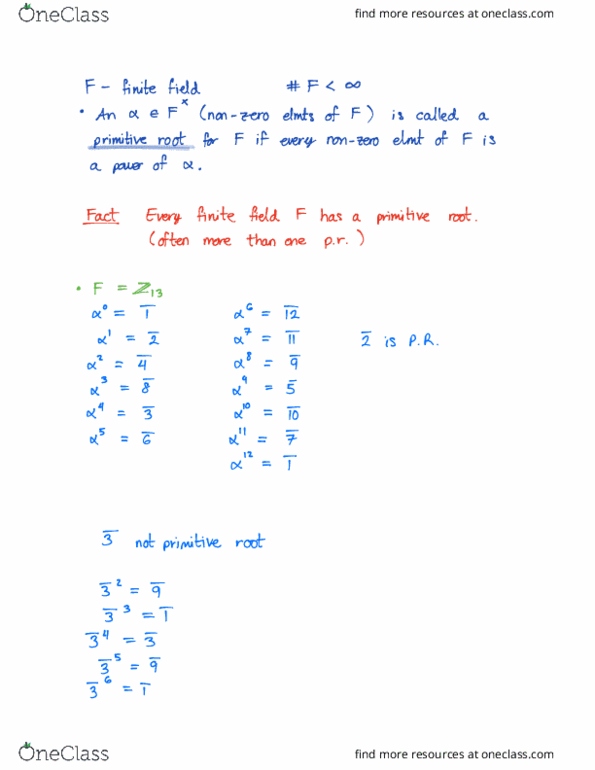 OneClass
find more resources at oneclass.com
F - finite field # F < ∞
• An α ∈ F^× (non-zero elmts of F) is called a
primitive root for F if every non-zero elmt of F is
a power of α.
Fact Every finite field F has a primitive root.
(often more than one p.r.)
• F = ℤ₁₃
α⁰ = 1̅
α¹ = 2̅
α² = 4̅
α³ = 8̅
α⁴ = 3̅
α⁵ = 6̅
α⁶ = 1̅2̅
α⁷ = 1̅1̅
α⁸ = 9̅
α⁹ = 5̅
α¹⁰ = 1̅0̅
α¹¹ = 7̅
α¹² = 1̅
2̅ is P.R.
3̅ not primitive root
3̅² = 9̅
3̅³ = 1̅
3̅⁴ = 3̅
3̅⁵ = 9̅
3̅⁶ = 1̅
OneClass
find more resources at oneclass.com